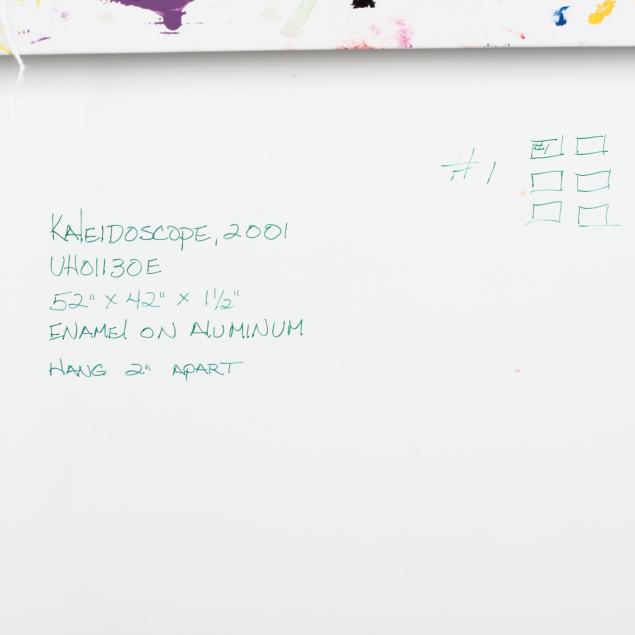 #1
#1
KALEIDOSCOPE, 2001
UH01130E
52" X 42" X 1 1/2"
ENAMEL ON ALUMINUM
HANG 2" APART